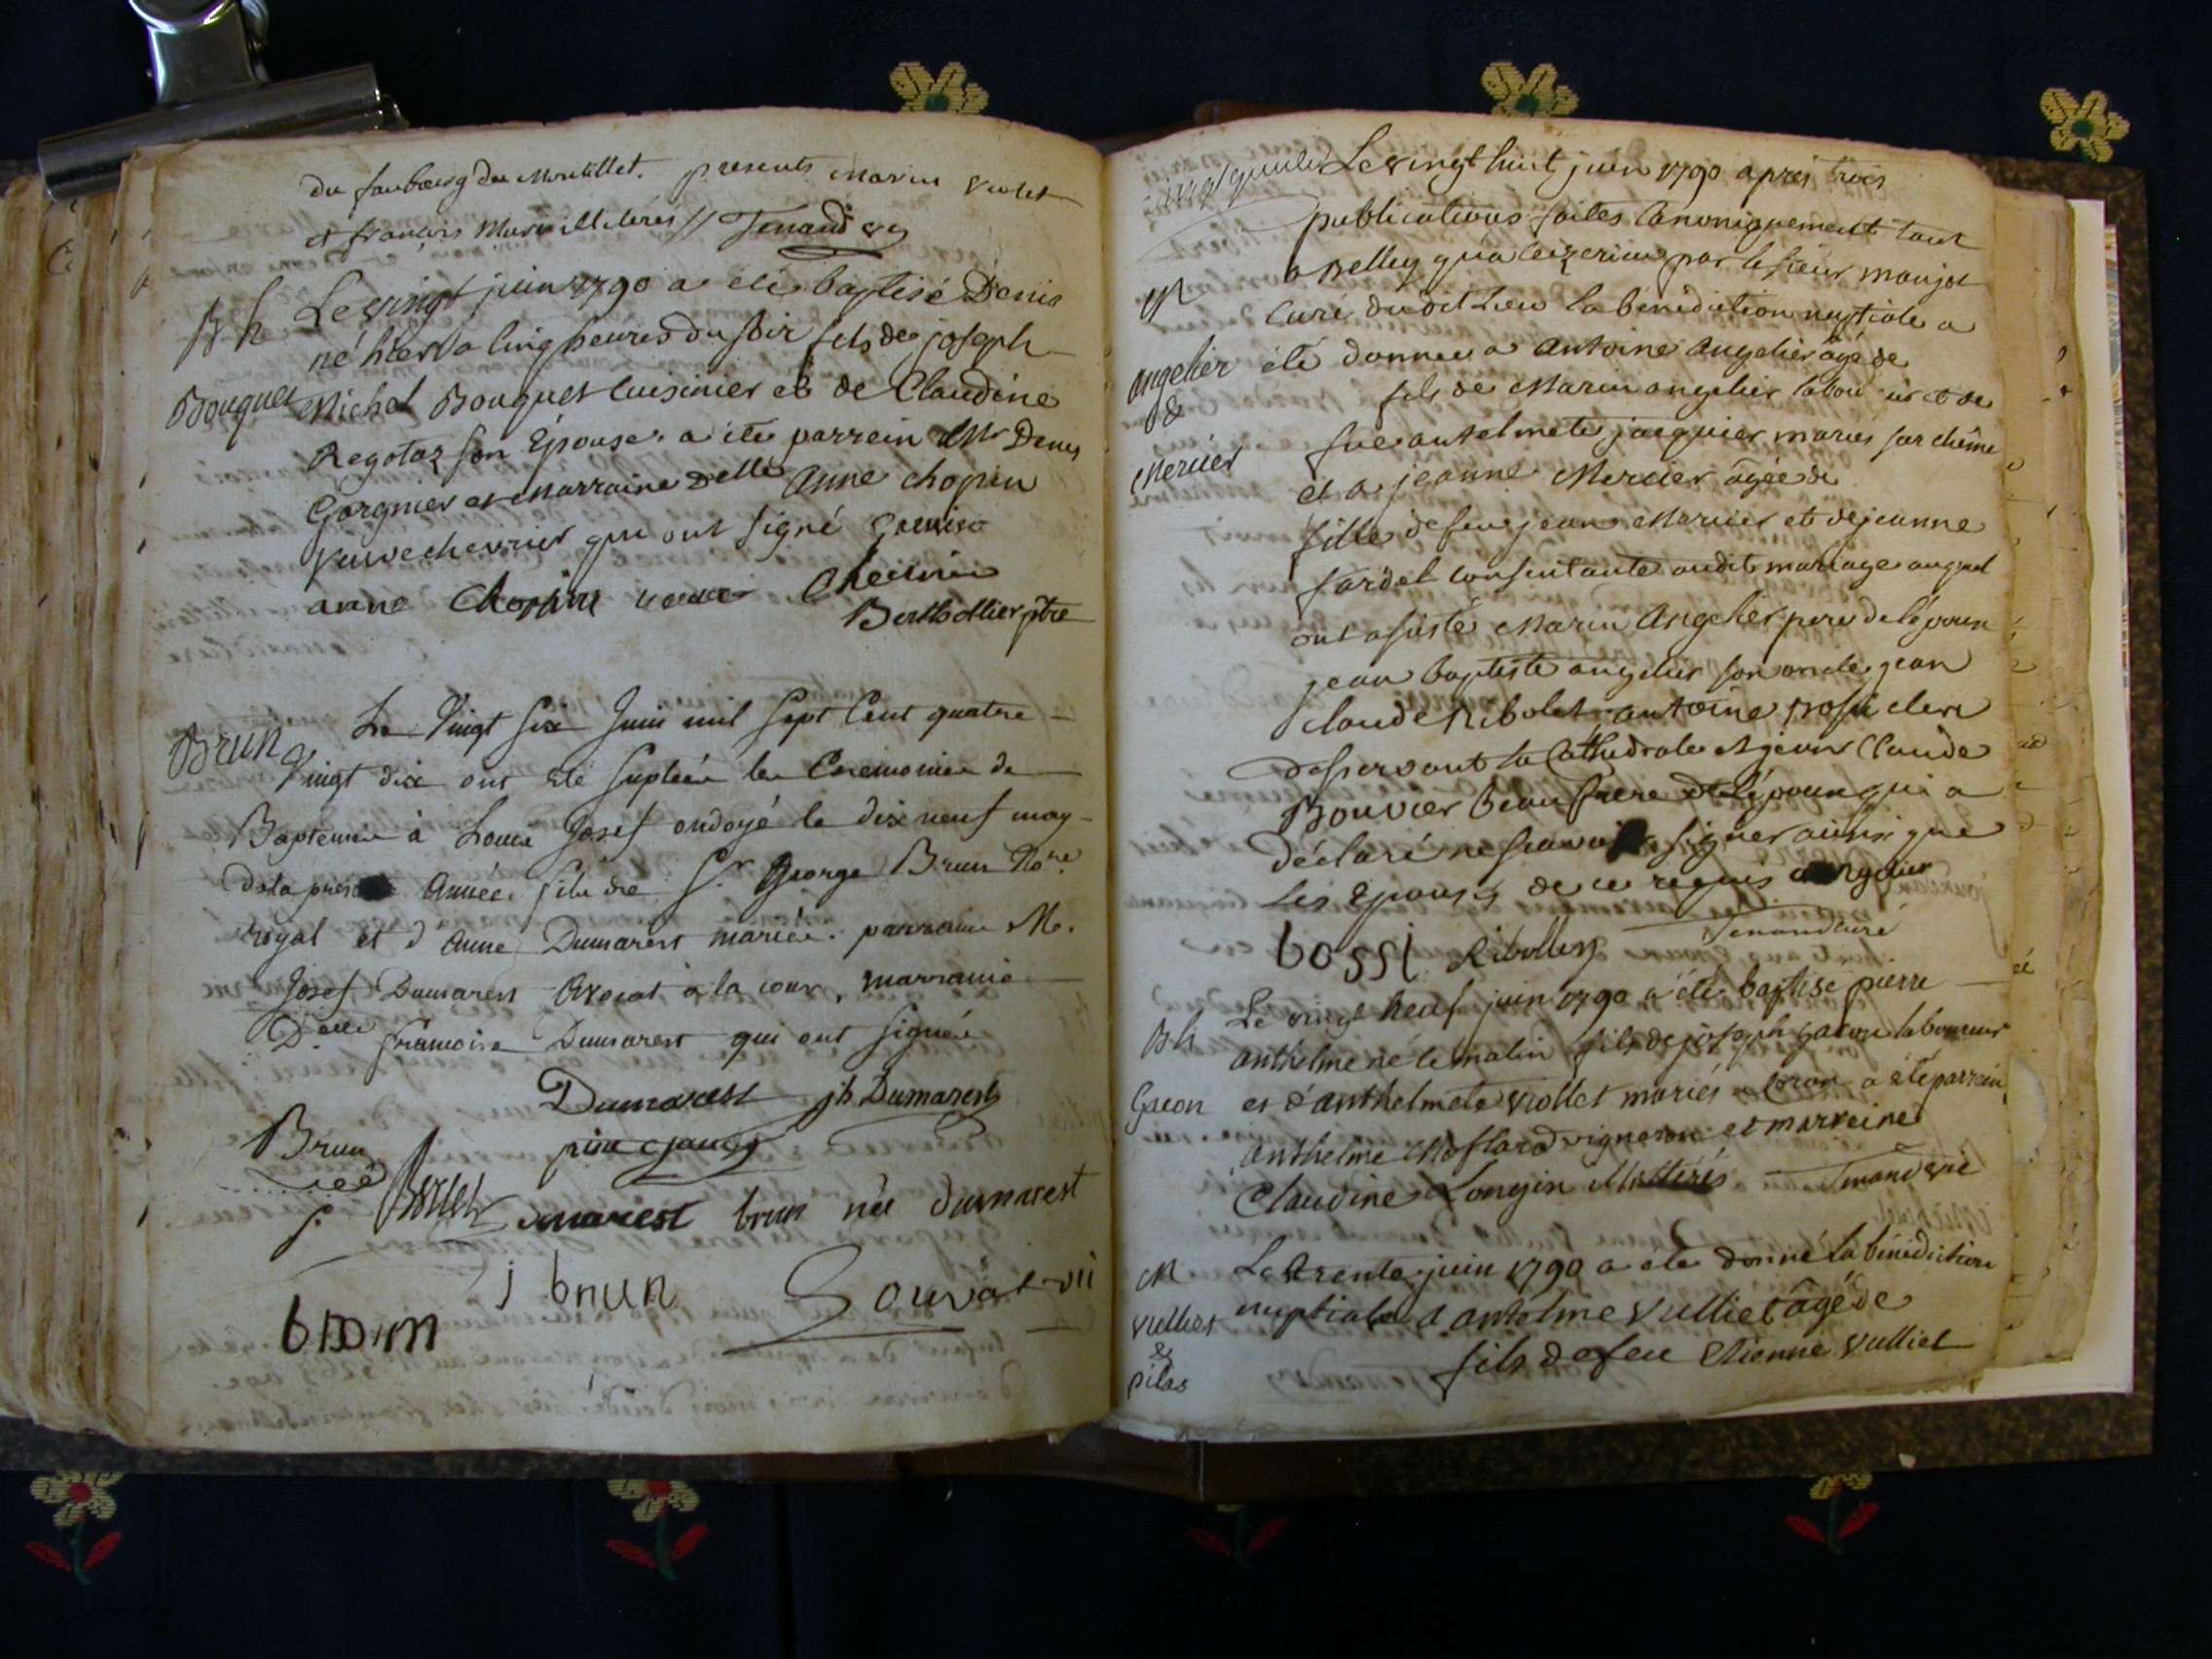 du faubourg du Montillet. presents Marin Violet
et françois illiteres // Tenand
Le vingt juin 1790 a été baptisé Denis
B h
né hier a cinq heures du soir fils de joseph
Bouquet
Michel Bouquet cuisinier et de Claudine
Regotaz son Epouse. a été parrein Mr Denis
Gorgnier et Marraine delle Anne chopin
Veuve chevrier qui ont signé
anne Chopin veuve
Berthollier ptre
Brun
Le Vingt six Juin mil sept Cent quatre
Vingt dix ont été supleés les Ceremonies de
Baptemme à Louis Josef ondoyé le dix neuf may
de la presente Année. fils de Sr. George Brun Nore.
royal et d'Anne Dumarest mariés. parrain Mr.
Josef Dumarest Avocat à la cour, marraine
Delle francoise Dumarest qui ont signés
Dumarest jh Dumarest
Brun
Dumarest brun née dumarest
j brun
Le vingt huit juin 1790 après trois
publications faites Canoniquement tant
a Belley qu'a Ceizerieu par le sieur maujot
M
curé dudit Lieu la bénédiction nuptiale a
angelier
été donnée a Antoine Angelier âgé de
&
fils de Marin angelier et de
Mercier
fue antelmete jacquier mariés sur chêne
et a jeanne Mercier âgée de
fille de feu jean Mercier et de jeanne
fardel consentante audit mariage auquel
ont assisté Marin Angelier pere de l'époux
jean baptiste angelier son oncle jean
claude Ribolet antoine bossi clerc
desservant la Cathedrale et jean Claude
Bouvier beaufrere de l'époux qui a
déclaré ne scavoir signer ainsi que
les Epoux de ce requis angelier
bossi Ribollet Tenand curé
Le vingt neuf juin 1790 a été baptisé pierre
B h
anthelme né le matin fils de joseph gacon laboureur
Gacon
et d'anthelmete Viollet mariés a Coron a été parrein
anthelme Moflard vigneron et marreine
Claudine Longin illitérés Tenand curé
M
Le trente juin 1790 a été donné la bénédiction
Vulliet
nuptiale a antelme Vulliet âgé de
&
fils de feu Etienne Vulliet
pilas